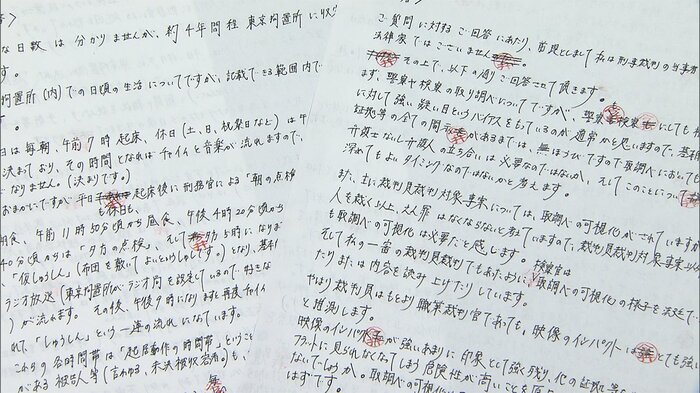 な日数は分かりませんが、約4年間程東京拘置所に収
す。
拘置所(内)での日頃の生活についてですが、記載できる範囲内で
日は毎朝、午前7時起床、休日(土、日、祝祭日など)は午
決まており、その時間となればチャイムと音楽が流れますので、
なりません。(決まりです。)
おまかにですが平日 起床後に刑務官による「朝の点検
も休日も、
朝食、午前11時50分頃から昼食、午後4時20分頃から
40分頃からは「夕方の点検」、そして 5時になりま
「仮しゅうしん」(布団を敷いてよいというしらせです。)となり、基本
ラジオ放送(東京拘置所がラジオ局を設定しているので、好きな
)が流れます。その後、午後9時になりますと再度チャイム
れて、「しゅうしん」という一連の流れになています。
これらの各時間帯は「起居動作の時間帯」というこ
がある被告人等(言わゆる、未決被収容者)も、
ご質問に対するご回答にあたり、前提としまして私は刑事裁判の当事者
法律家ではございません
その上で、以下の通りご回答させて頂きます。
まず、警察や検察の取り調べについてですが、警察も検察
に対して強い疑い目というバイアスをもっているのが通常かと思いますので、基本
証拠等の全ての開示 があるまでは、無ぼうびですので取調べにおいても
弁護士ないし弁護人の立ち合いは必要なのではないか、そしてこのことについて
深めてもよいタイミングなのではないかと考えます。
また、主に裁判員裁判対象事案については、取調べの可視化がされていますが
人を裁く以上、えん罪はなくならないと考ていますので、裁判員裁判対象事案以外
も取調べの可視化は必要だと感じます。
検察官は
そして私の一審の裁判員裁判でもあたように 取調べの可視化の様子を法廷で
たりまたは内容を読み上げたりしています。
やはり裁判員はもとより職業裁判官であても、映像のインパクトは とても強い
と推測します。
映像のインパクト が強いあまりに印象として強く残り、他の証拠等
フラットに見られなくなってしまう危険性が高いことを
ないでしょうか。取調べの可視化
はずです。